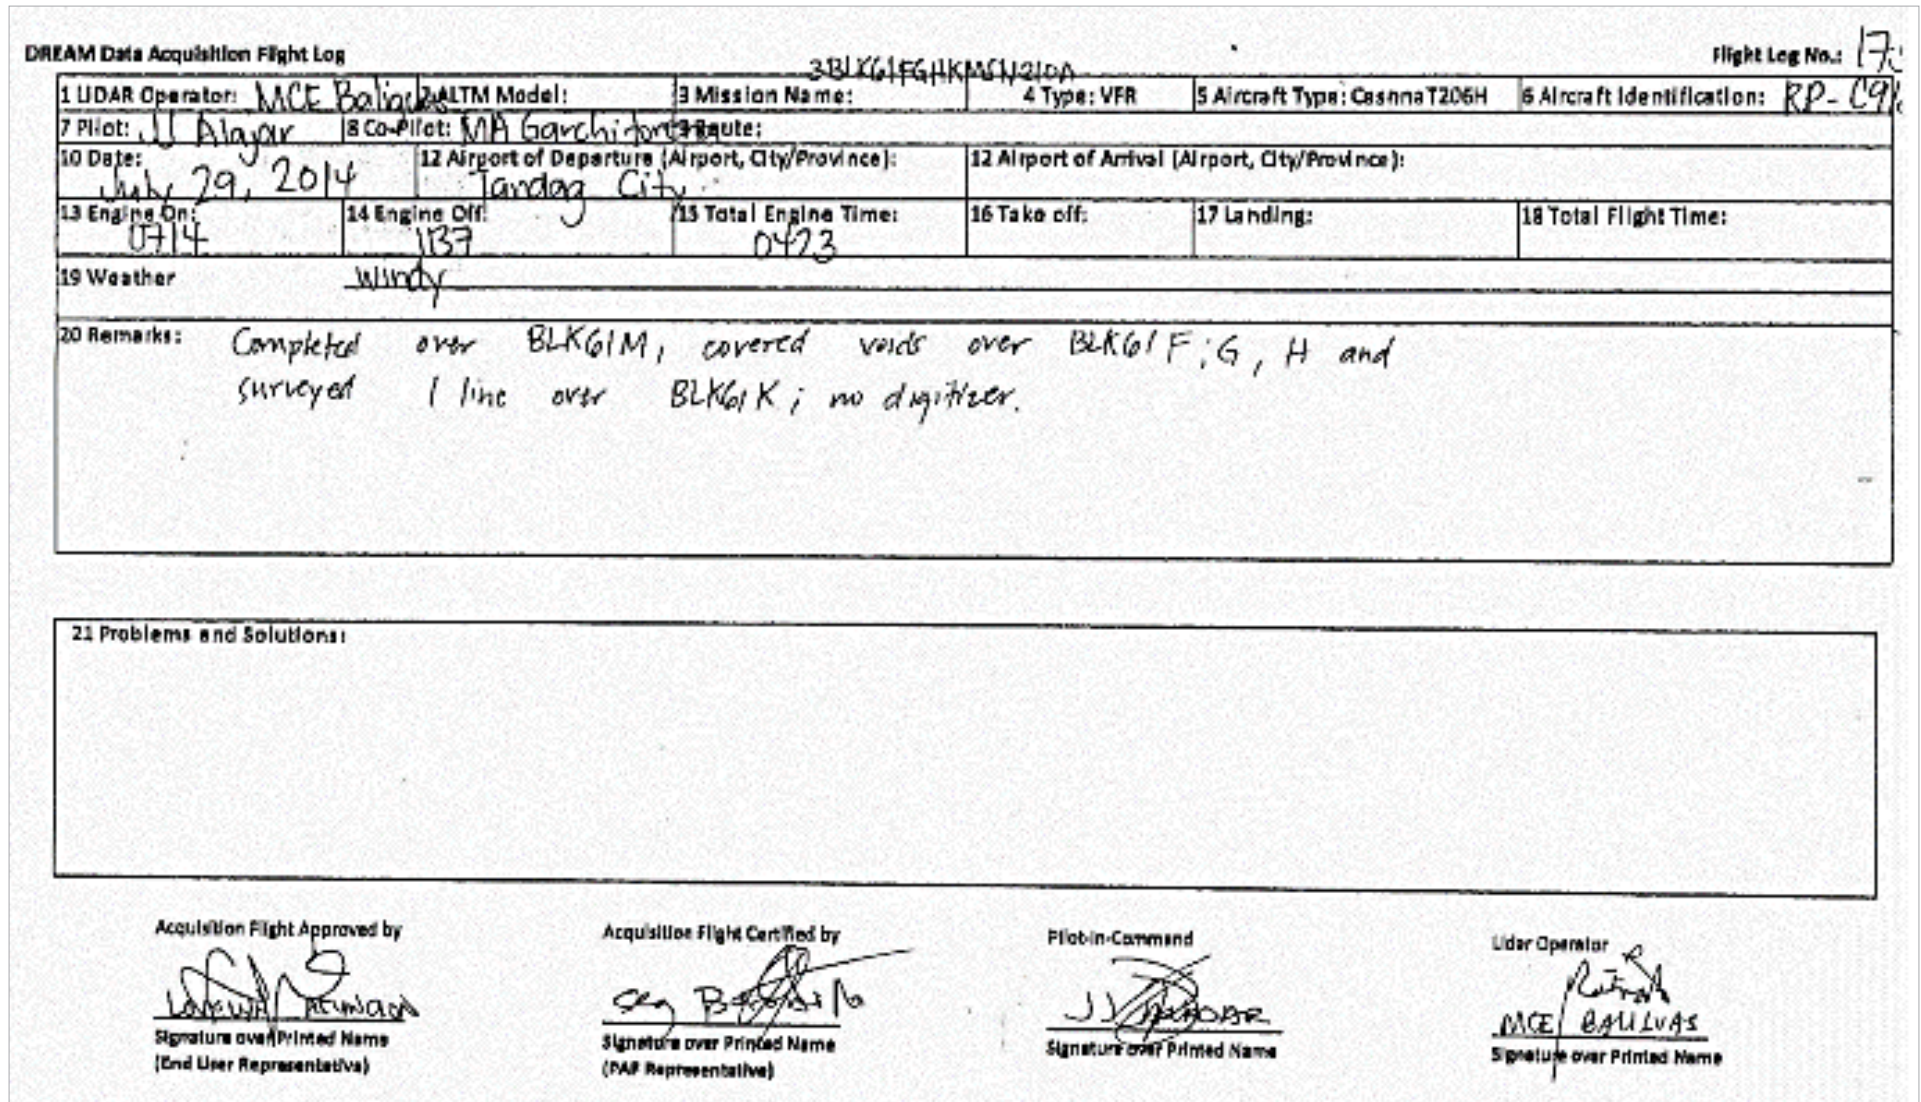 DREAM Data Acquisition Flight Log
Flight Log No.:
3BLK61FGHKMSN210A
1 LIDAR Operator: MCE 2 ALTM Model: 3 Mission Name: 4 Type: VFR 5 Aircraft Type: CesnnaT206H 6 Aircraft Identification: RP-
7 Pilot: JJ Alajar 8 Co-Pilot: MA 9 Route:
10 Date: July 29, 2014 12 Airport of Departure (Airport, City/Province): Tandag City 12 Airport of Arrival (Airport, City/Province):
13 Engine On: 0714 14 Engine Off: 1137 15 Total Engine Time: 0423 16 Take off: 17 Landing: 18 Total Flight Time:
19 Weather Windy
20 Remarks: Completed over BLK61M, covered voids over BLK61F, G, H and
surveyed 1 line over BLK61K; no digitizer.
21 Problems and Solutions:
Acquisition Flight Approved by
Signature over Printed Name
(End User Representative)
Acquisition Flight Certified by
Signature over Printed Name
(PAF Representative)
Pilot-in-Command
JJ
Signature over Printed Name
Lidar Operator
MCE
Signature over Printed Name